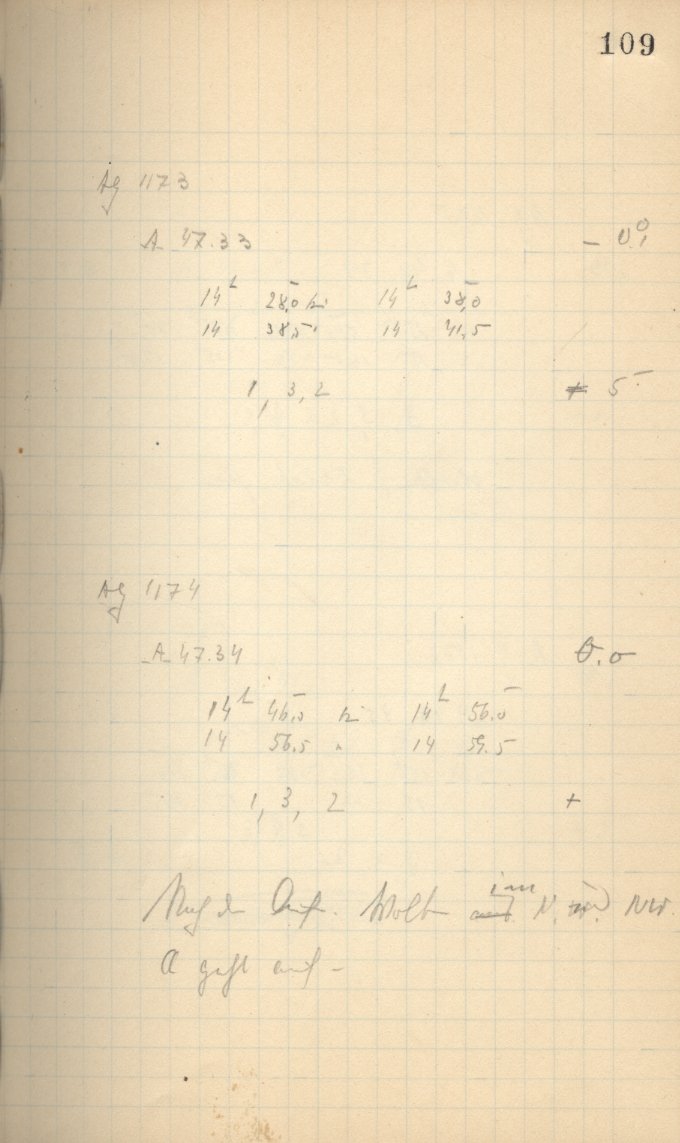 109
Ag 1173
A 47.33 – 0.°1
14h 28,0 bis 14h 38,0
14 38,5 " 14 41,5
1, 3, 2 5
Ag 1174
A 47.34 0.0
14h 46,0 bis 14h 56.0
14 56.5 " 14 59.5
1, 3, 2 +
Nach der Auf. Wolken im N. und NW.
A geht auf –